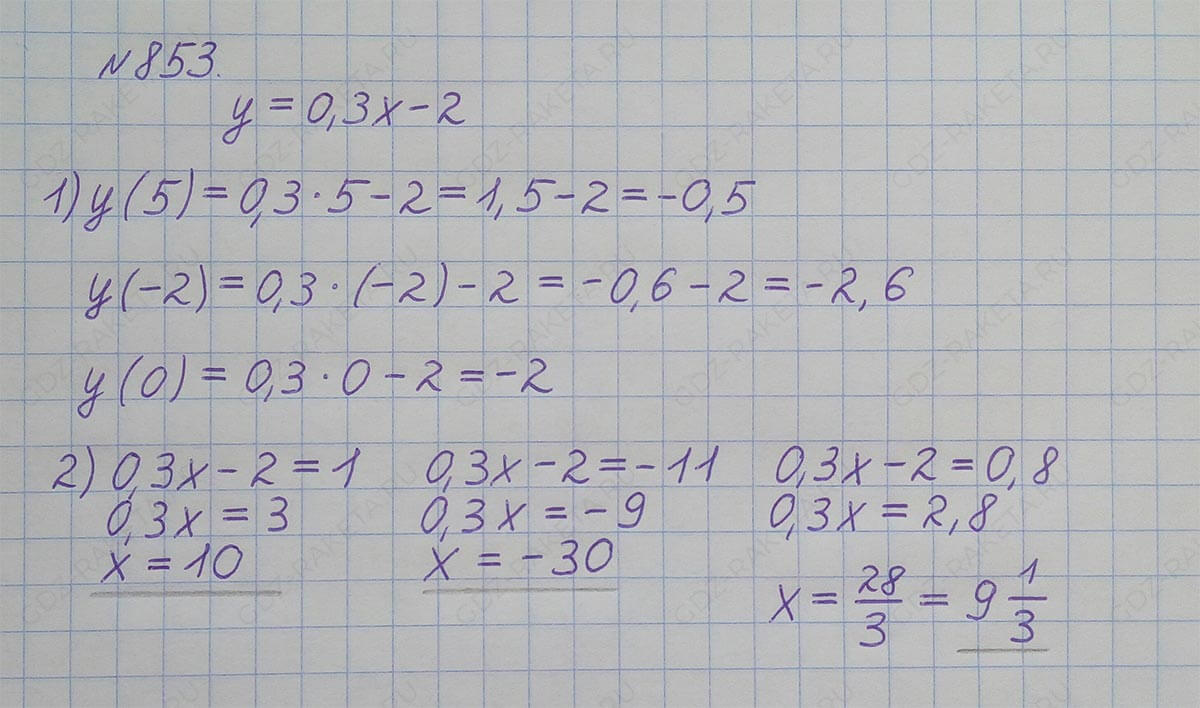 №853.
y = 0,3x - 2
1) y(5) = 0,3 · 5 - 2 = 1,5 - 2 = -0,5
y(-2) = 0,3 · (-2) - 2 = -0,6 - 2 = -2,6
y(0) = 0,3 · 0 - 2 = -2
2) 0,3x - 2 = 1 0,3x - 2 = -11 0,3x - 2 = 0,8
0,3x = 3 0,3x = -9 0,3x = 2,8
x = 10 x = -30
x = 28/3 = 9 1/3